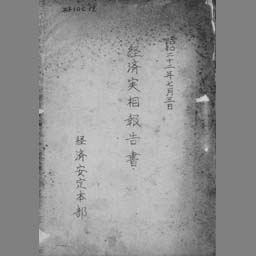 昭和二十二年七月三日
経済実相報告書
経済安定本部